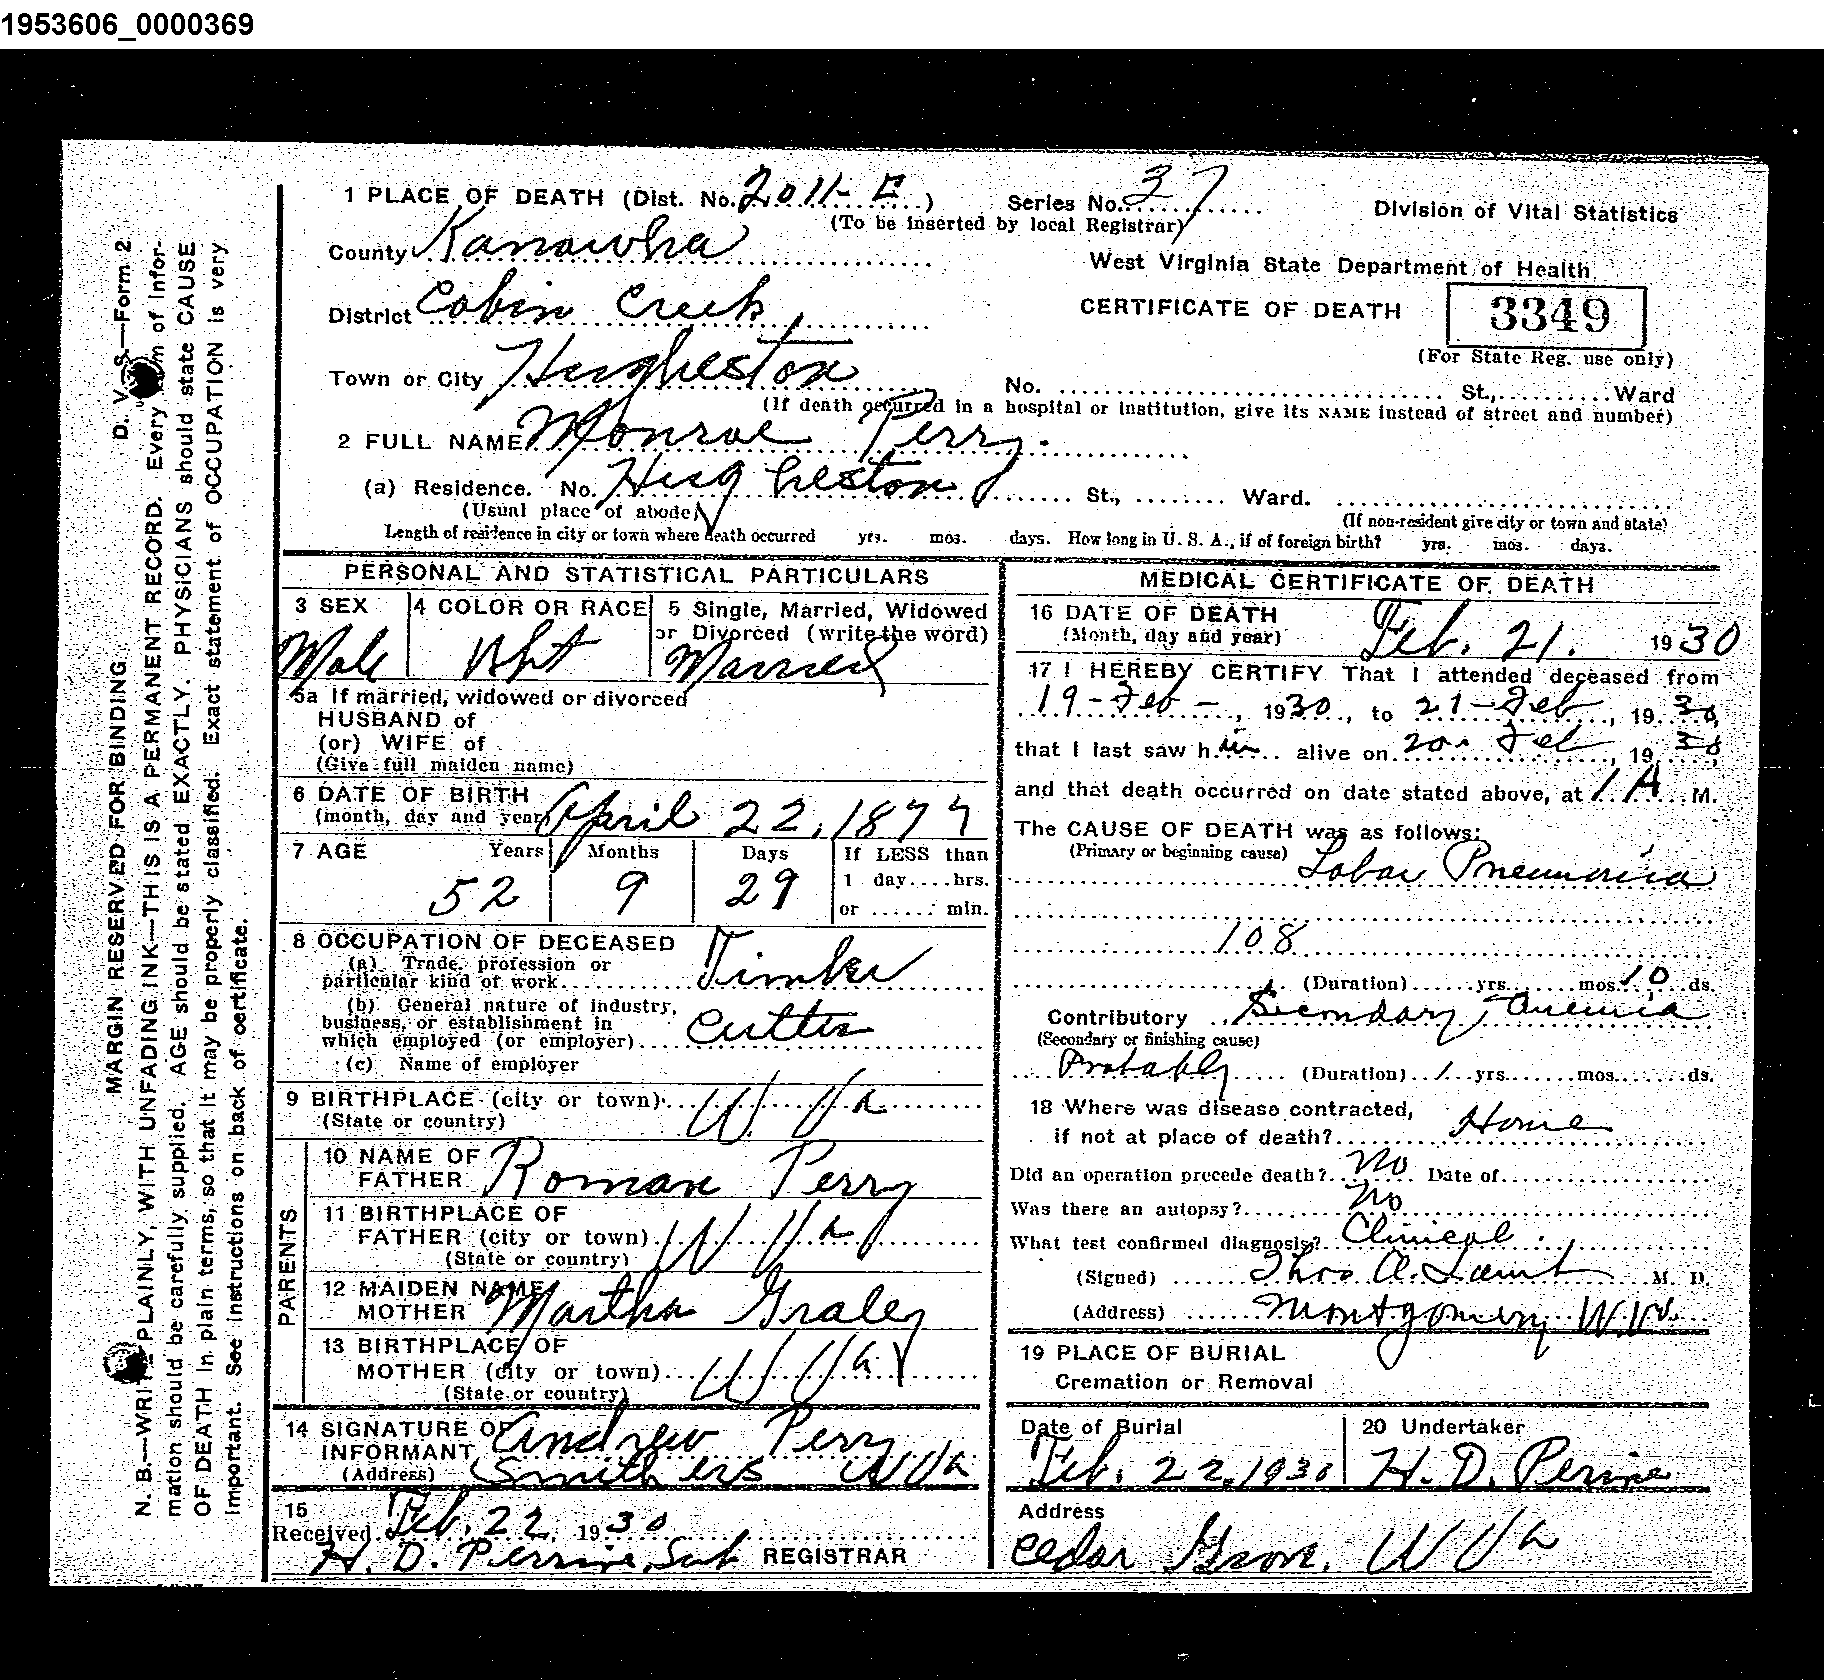 1953606_0000369
1 PLACE OF DEATH (Dist. No. 2011-E) Series No. 37
(To be inserted by local Registrar)
Division of Vital Statistics
County Kanawha
West Virginia State Department of Health
District Cabin Creek
CERTIFICATE OF DEATH 3349
(For State Reg. use only)
Town or City Hugheston
No. St., Ward
(If death occurred in a hospital or institution, give its NAME instead of street and number)
2 FULL NAME Monroe Perry.
(a) Residence. No. Hugheston St., Ward.
(Usual place of abode)
(If non-resident give city or town and state)
Length of residence in city or town where death occurred yrs. mos. days. How long in U. S. A., if of foreign birth? yrs. mos. days.
PERSONAL AND STATISTICAL PARTICULARS
3 SEX
Male
4 COLOR OR RACE
Wht
5 Single, Married, Widowed
or Divorced (write the word)
Married
5a If married, widowed or divorced
HUSBAND of
(or) WIFE of
(Give full maiden name)
6 DATE OF BIRTH
(month, day and year) April 22, 1877
7 AGE Years Months Days If LESS than
1 day....hrs.
or ...... min.
52 9 29
8 OCCUPATION OF DECEASED
(a) Trade, profession or
particular kind of work Timber
(b) General nature of industry,
business, or establishment in
which employed (or employer) Cutter
(c) Name of employer
9 BIRTHPLACE (city or town) W Va
(State or country)
PARENTS
10 NAME OF
FATHER Roman Perry
11 BIRTHPLACE OF
FATHER (city or town) W Va
(State or country)
12 MAIDEN NAME
MOTHER Martha Graley
13 BIRTHPLACE OF
MOTHER (city or town) W Va
(State or country)
14 SIGNATURE OF
INFORMANT Andrew Perry
(Address) Smithers W Va
15
Received Feb. 22, 1930
H. D. Perrine, Sub REGISTRAR
MEDICAL CERTIFICATE OF DEATH
16 DATE OF DEATH
(Month, day and year) Feb. 21. 1930
17 I HEREBY CERTIFY That I attended deceased from
19-Feb-, 1930, to 21-Feb, 1930,
that I last saw him alive on 20- Feb, 1930,
and that death occurred on date stated above, at 1 A M.
The CAUSE OF DEATH was as follows:
(Primary or beginning cause) Lobar Pneumonia
108
(Duration) yrs. mos. 10 ds.
Contributory Secondary Anemia
(Secondary or finishing cause)
Probably (Duration) 1 yrs. mos. ds.
18 Where was disease contracted,
if not at place of death? Home
Did an operation precede death? No Date of
Was there an autopsy? No
What test confirmed diagnosis? Clinical
(Signed) Thos A. M. D.
(Address) Montgomery W. Va.
19 PLACE OF BURIAL
Cremation or Removal
Date of Burial
Feb. 22, 1930
20 Undertaker
H. D. Perine
Address
Cedar Grove, W Va
D. V. S.—Form 2
MARGIN RESERVED FOR BINDING
N. B.—WRITE PLAINLY, WITH UNFADING INK—THIS IS A PERMANENT RECORD. Every item of infor-
mation should be carefully supplied. AGE should be stated EXACTLY. PHYSICIANS should state CAUSE
OF DEATH in plain terms, so that it may be properly classified. Exact statement of OCCUPATION is very
important. See instructions on back of certificate.